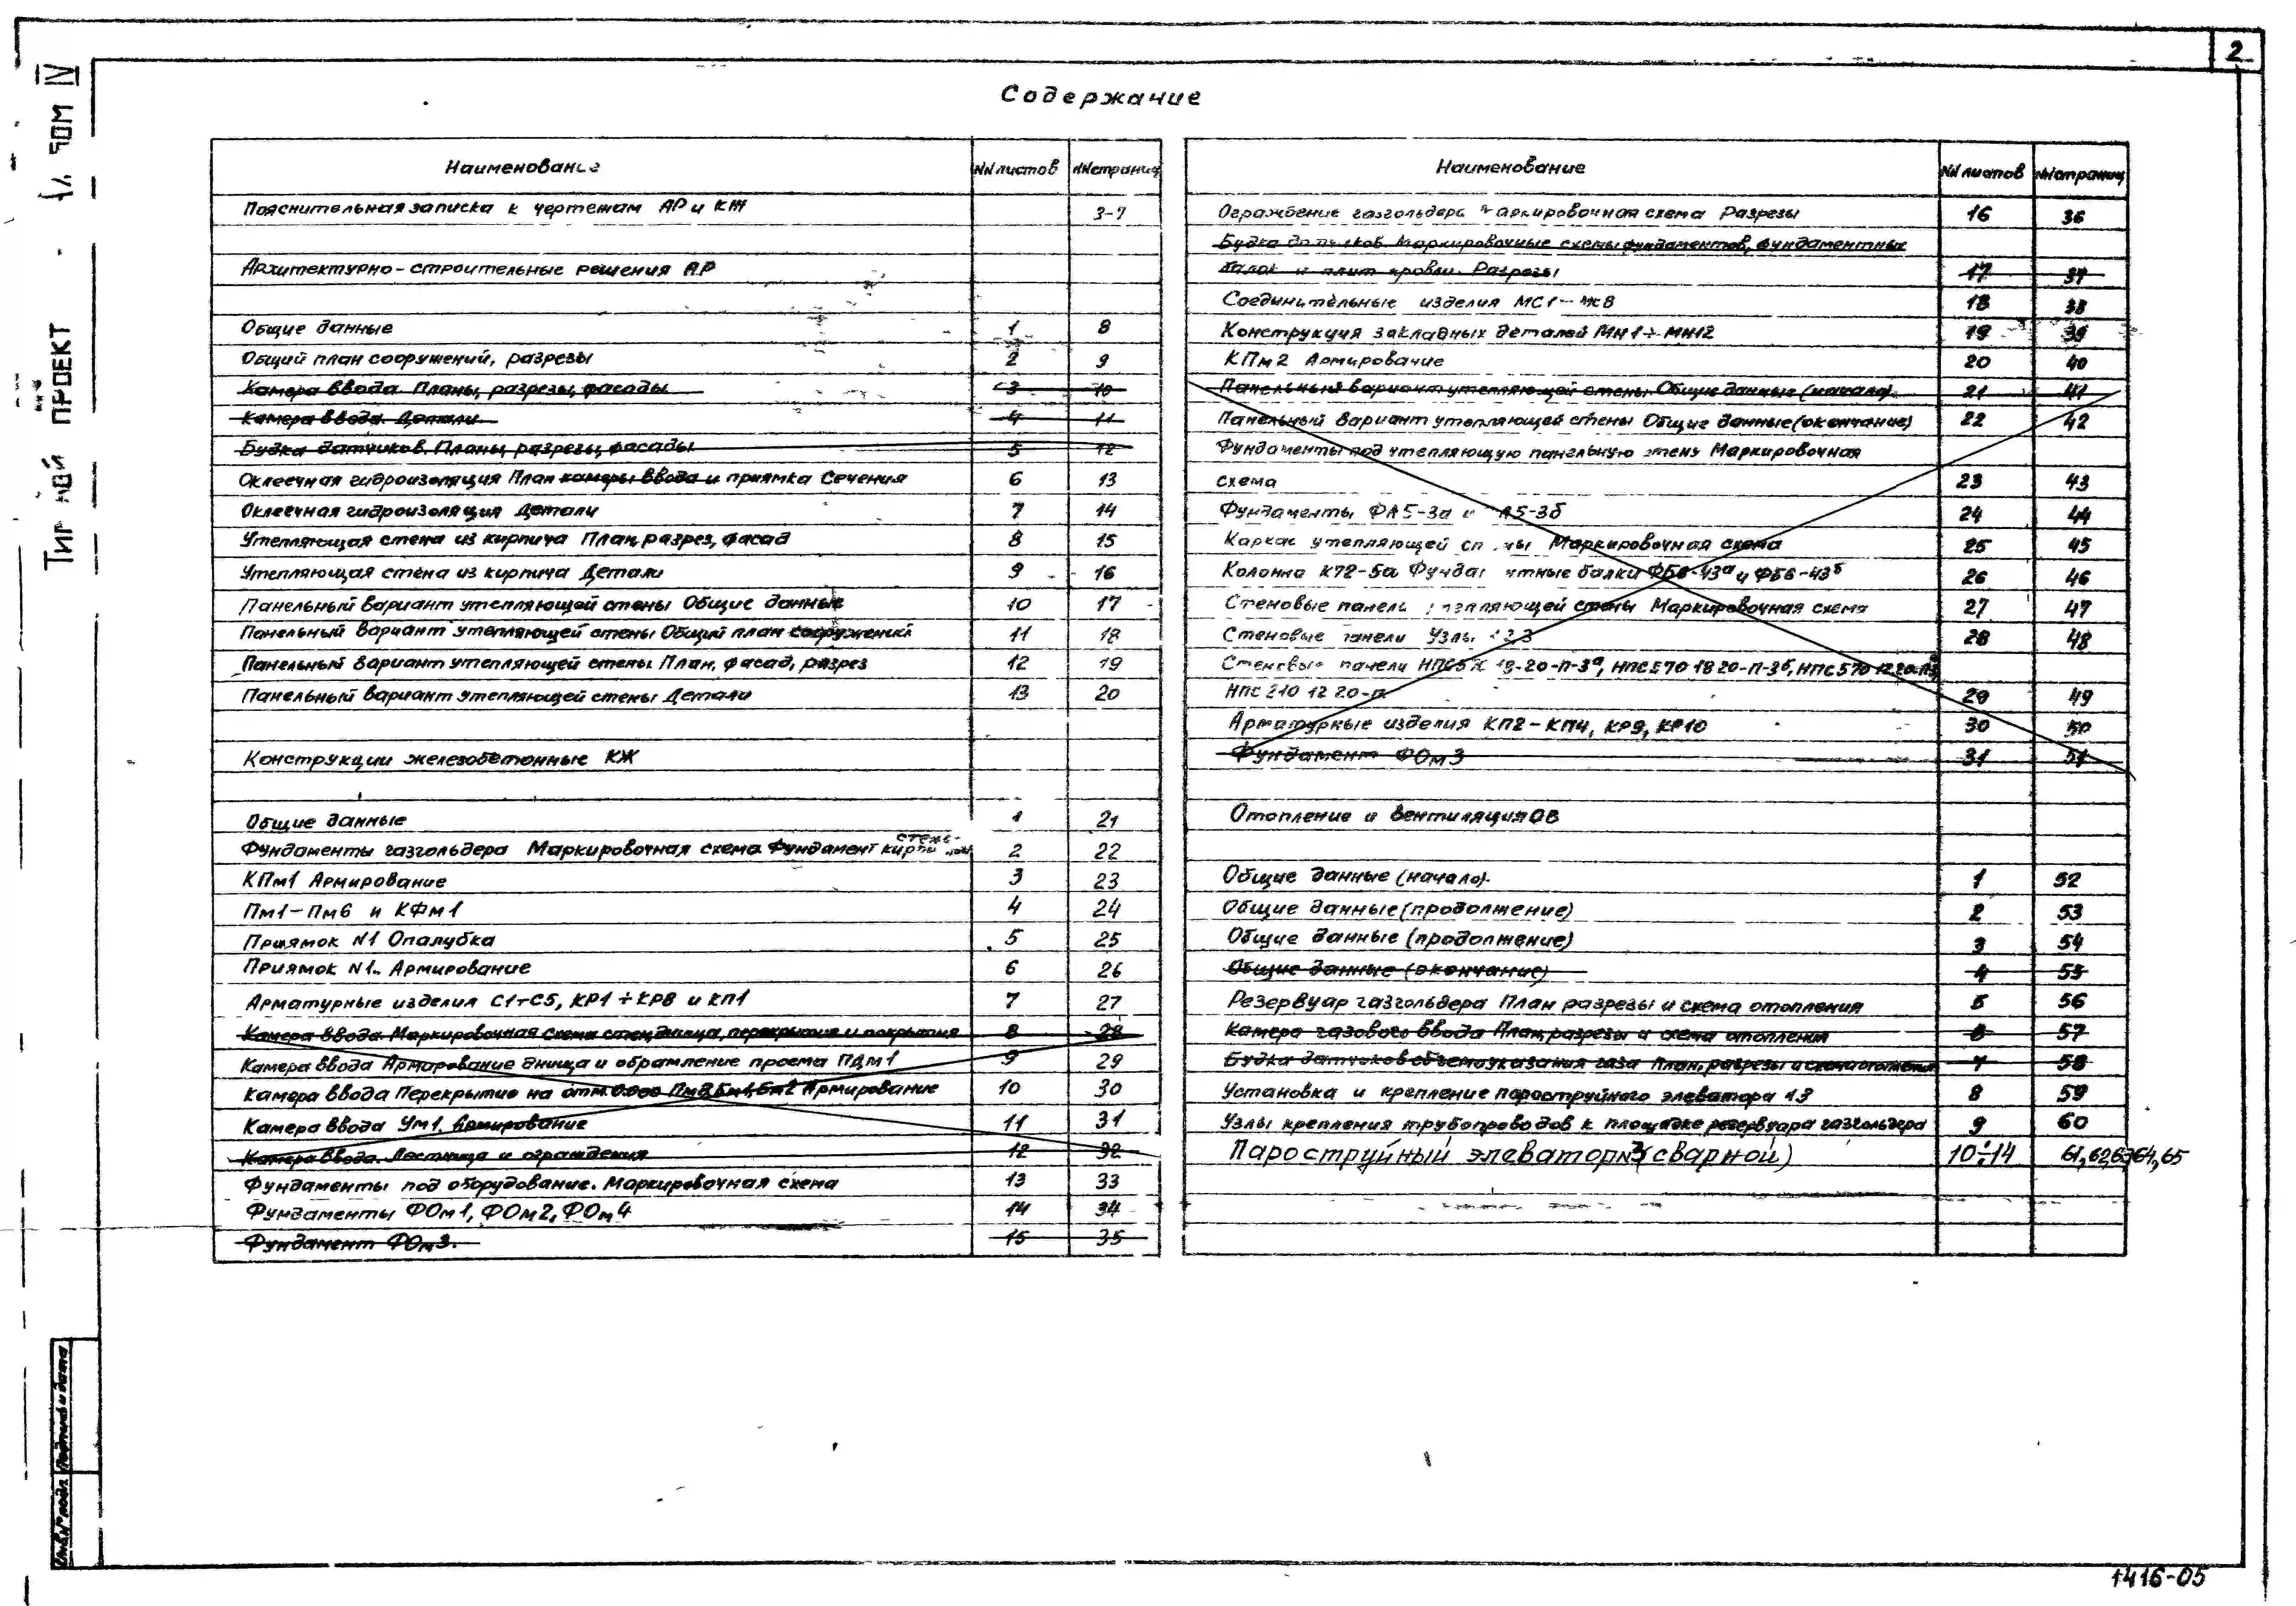 2
IV
ПРОЕКТ
Содержание
Наименование NN листов NN страниц
Пояснительная записка к чертежам АР и КЖ 3-7
Архитектурно-строительные решения АР
Общие данные 1 8
Общий план сооружений, разрезы 2 9
Камера ввода Планы, разрезы, фасады 3 10
Камера ввода. Детали. 4 11
Будка датчиков. Планы, разрезы, фасады 5 12
Оклеечная гидроизоляция План камеры ввода и приямка Сечения 6 13
Оклеечная гидроизоляция Детали 7 14
Утепляющая стена из кирпича План, разрез, фасад 8 15
Утепляющая стена из кирпича Детали 9 16
Панельный вариант утепляющей стены Общие данные 10 17
Панельный вариант утепляющей стены Общий план сооружений 11 18
Панельный вариант утепляющей стены План, фасад, разрез 12 19
Панельный вариант утепляющей стены Детали 13 20
Конструкции железобетонные КЖ
Общие данные 1 21
Фундаменты газгольдера Маркировочная схема Фундамент 2 22
КПм1 Армирование 3 23
Пм1-Пм6 и КФм1 4 24
Приямок N1 Опалубка 5 25
Приямок N1. Армирование 6 26
Арматурные изделия С1÷С5, КР1÷КР8 и КП1 7 27
Камера ввода Маркировочная схема стен, днища, перекрытия и покрытия 8 28
Камера ввода Армирование днища и обрамление проема ПДм1 9 29
Камера ввода Перекрытие на отм. 0.000 Армирование 10 30
Камера ввода Ум1. Армирование 11 31
Камера ввода. Лестница и ограждения 12 32
Фундаменты под оборудование. Маркировочная схема 13 33
Фундаменты ФОм1, ФОм2, ФОм4 14 34
Фундамент ФОм3. 15 35
Наименование NN листов NN страниц
Ограждение газгольдера Маркировочная схема Разрезы 16 36
Будка датчиков. Маркировочные схемы фундаментов, фундаментных
балок и плит кровли. Разрезы 17 37
Соединительные изделия МС1- 18 38
Конструкция закладных деталей МН1÷МН12 19 39
КПм2 Армирование 20 40
Панельный вариант утепляющей стены Общие данные (начало). 21 41
Панельный вариант утепляющей стены Общие данные (окончание) 22 42
Фундаменты под утепляющую панельную стену Маркировочная
схема 23 43
Фундаменты ФА5-3а и А5-3б 24 44
Каркас утепляющей стены Маркировочная схема 25 45
Колонна К72-5а Фундаментные балки ФБ6-43а и ФБ6-43б 26 46
Стеновые панели утепляющей стены Маркировочная схема 27 47
Стеновые панели Узлы 28 48
Стеновые панели
НПС 210 12 20-п 29 49
Арматурные изделия КП2-КП4, КР9, КР10 30 50
Фундамент ФОм3 31 51
Отопление и вентиляция ОВ
Общие данные (начало). 1 52
Общие данные (продолжение) 2 53
Общие данные (продолжение) 3 54
Общие данные (окончание) 4 55
Резервуар газгольдера План разрезы и схема отопления 5 56
Камера газового ввода План, разрезы и схема отопления 6 57
Будка датчиков объемоуказания газа План, разрезы и схема отопления 7 58
Установка и крепление пароструйного элеватора 8 59
Узлы крепления трубопроводов к площадке резервуара газгольдера 9 60
Пароструйный элеватор №3 (сварной) 10÷14 61,62,63,64,65
Инв.№ подл. Подпись и дата
1416-05